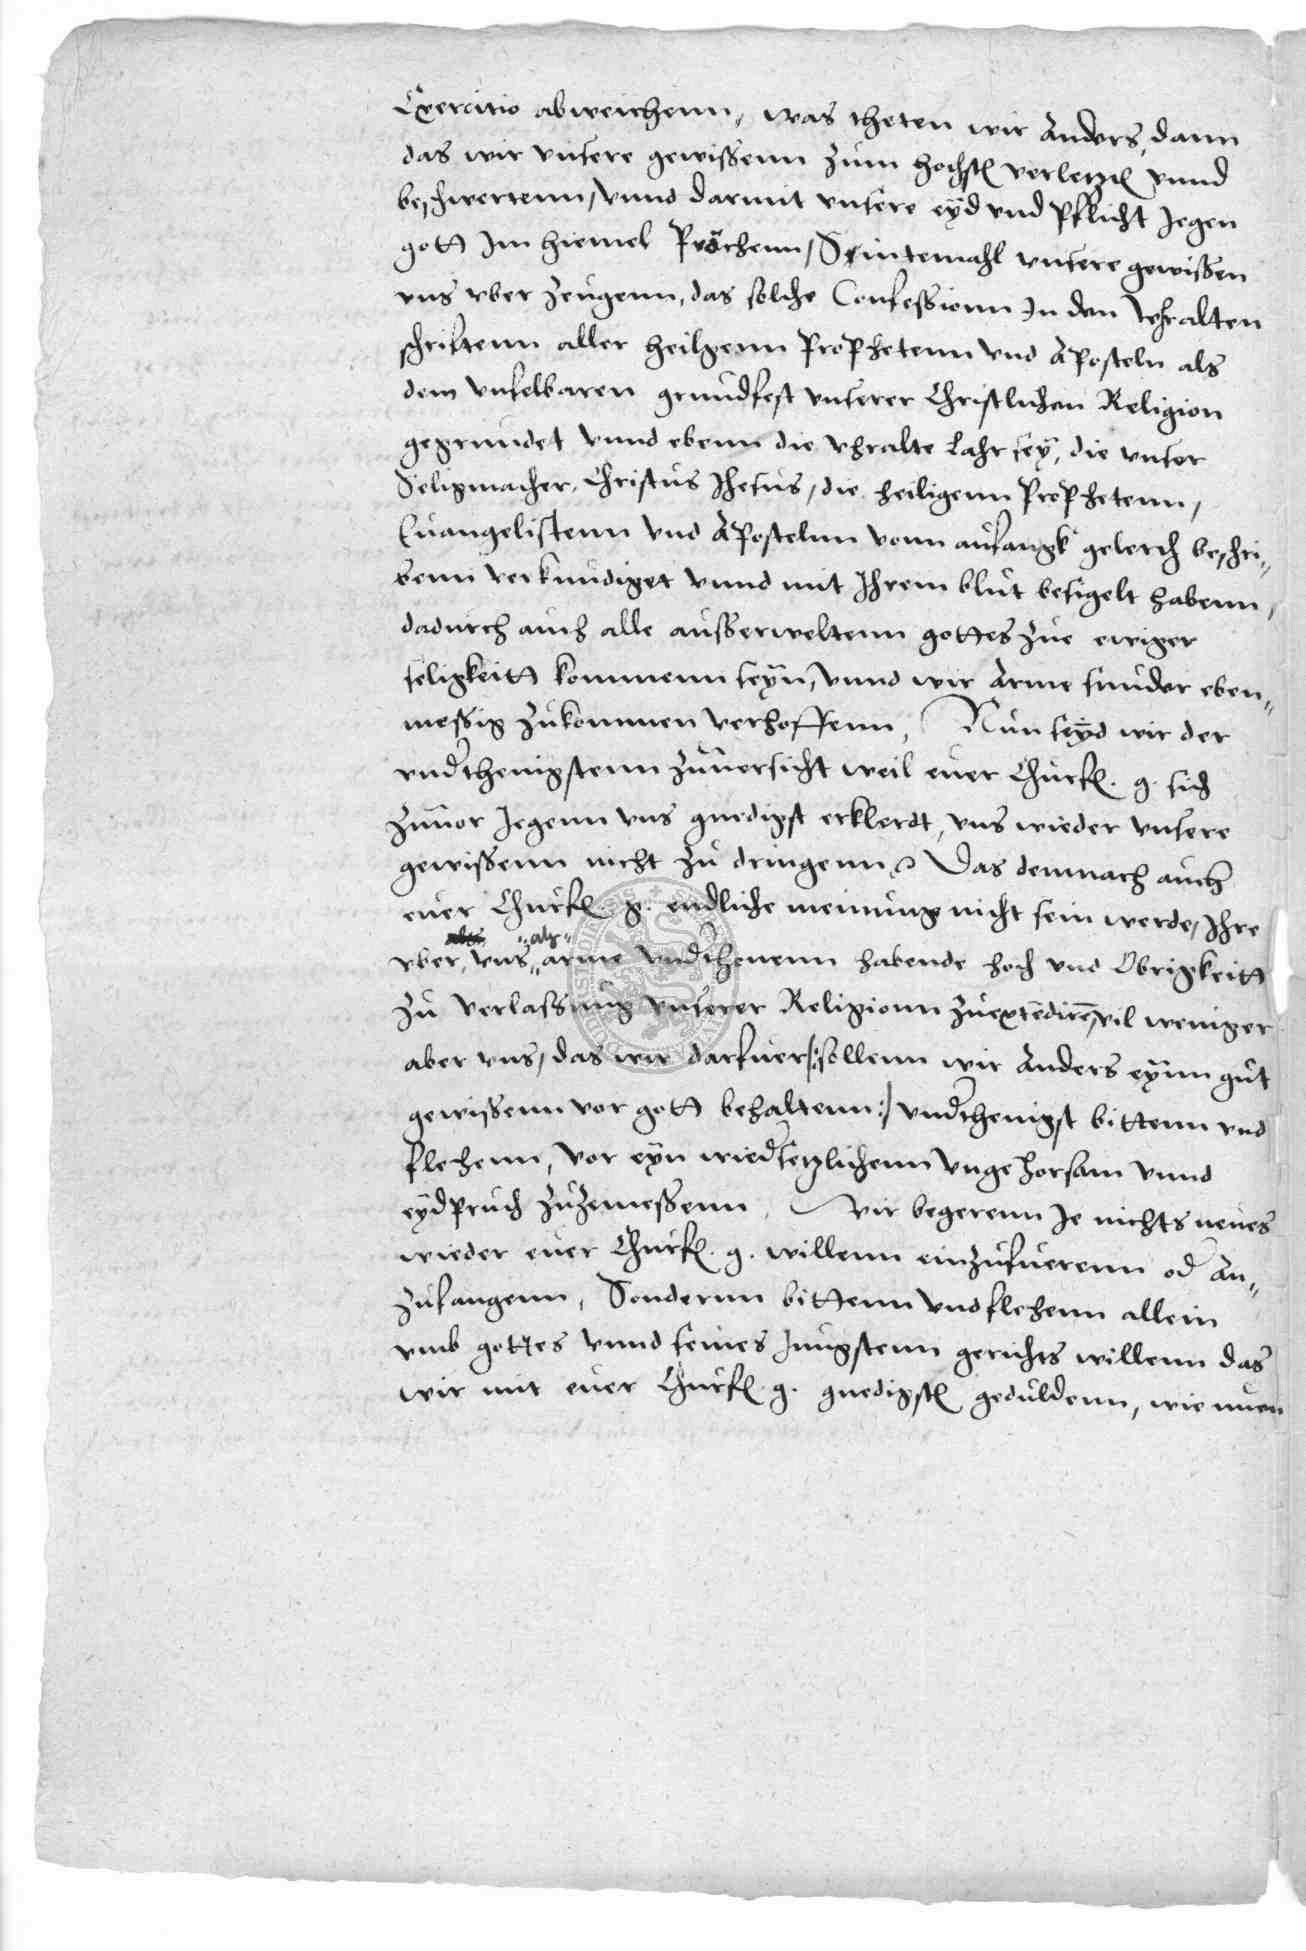 Exercitio abweichenn, was theten wir Anders, dann
das wir unsere gewissenn zum hochsten verletzten unnd
beschwertenn, unnd darmit unsere eyd und Pflicht Jegen
gott Im hiemel Prächenn, Seintemahl unsere gewissen
uns uber zeugenn, das solche Confessionn In den Uhralten
schriftenn aller heilgenn Prophetenn und Aposteln als
dem unfelbaren grundfest unserer Christlichen Religion
gegrundet unnd ebenn die uhralte Lahr sey, die unser
Seligmacher, Christus Jhesus, die heiligenn Prophetenn,
Evangelistenn und Apostelnn vonn anfangk gelerth beschri„
benn verkundiget unnd mit Ihrem blut besigelt habenn,
dadurch auch alle ausserweltenn gottes zue ewiger
seligkeitt kommenn seyn, unnd wir Arme sunder eben„
messig zukommen verhoffenn, Nun seyd wir der
underthenigstenn zuversicht weil euer Churf. g. sich
zuvor Jegenn uns gnedigst erklerdt, uns wieder unsere
gewissenn nicht zu dringenn, Das demnach auch
euer Churf. g. endliche meinung nicht sein werde, Ihre
uber, uns „als“ arme underthenenn habende hoch und Obrigkeitt
zu verlassung unserer Religionn zuextendiren, vil weniger
aber uns, das wir darfuer /: sollenn wir Anders eynn gut
gewissenn vor gott behaltenn :/ underthenigst bittenn und
flehenn, vor eyn wiedersetzlichenn Ungehorsam unnd
eydpruch zuzemessenn, Wir begerenn Je nichts neues
wieder euer Churf. g. willenn einzufuerenn oder An„
zufangenn, Sonderun bittenn und flehenn allein
umb gottes unnd seines Jungstenn gerichts willenn das
wir mit euer Churf. g. gnedigsten geduldenn, wie nuen